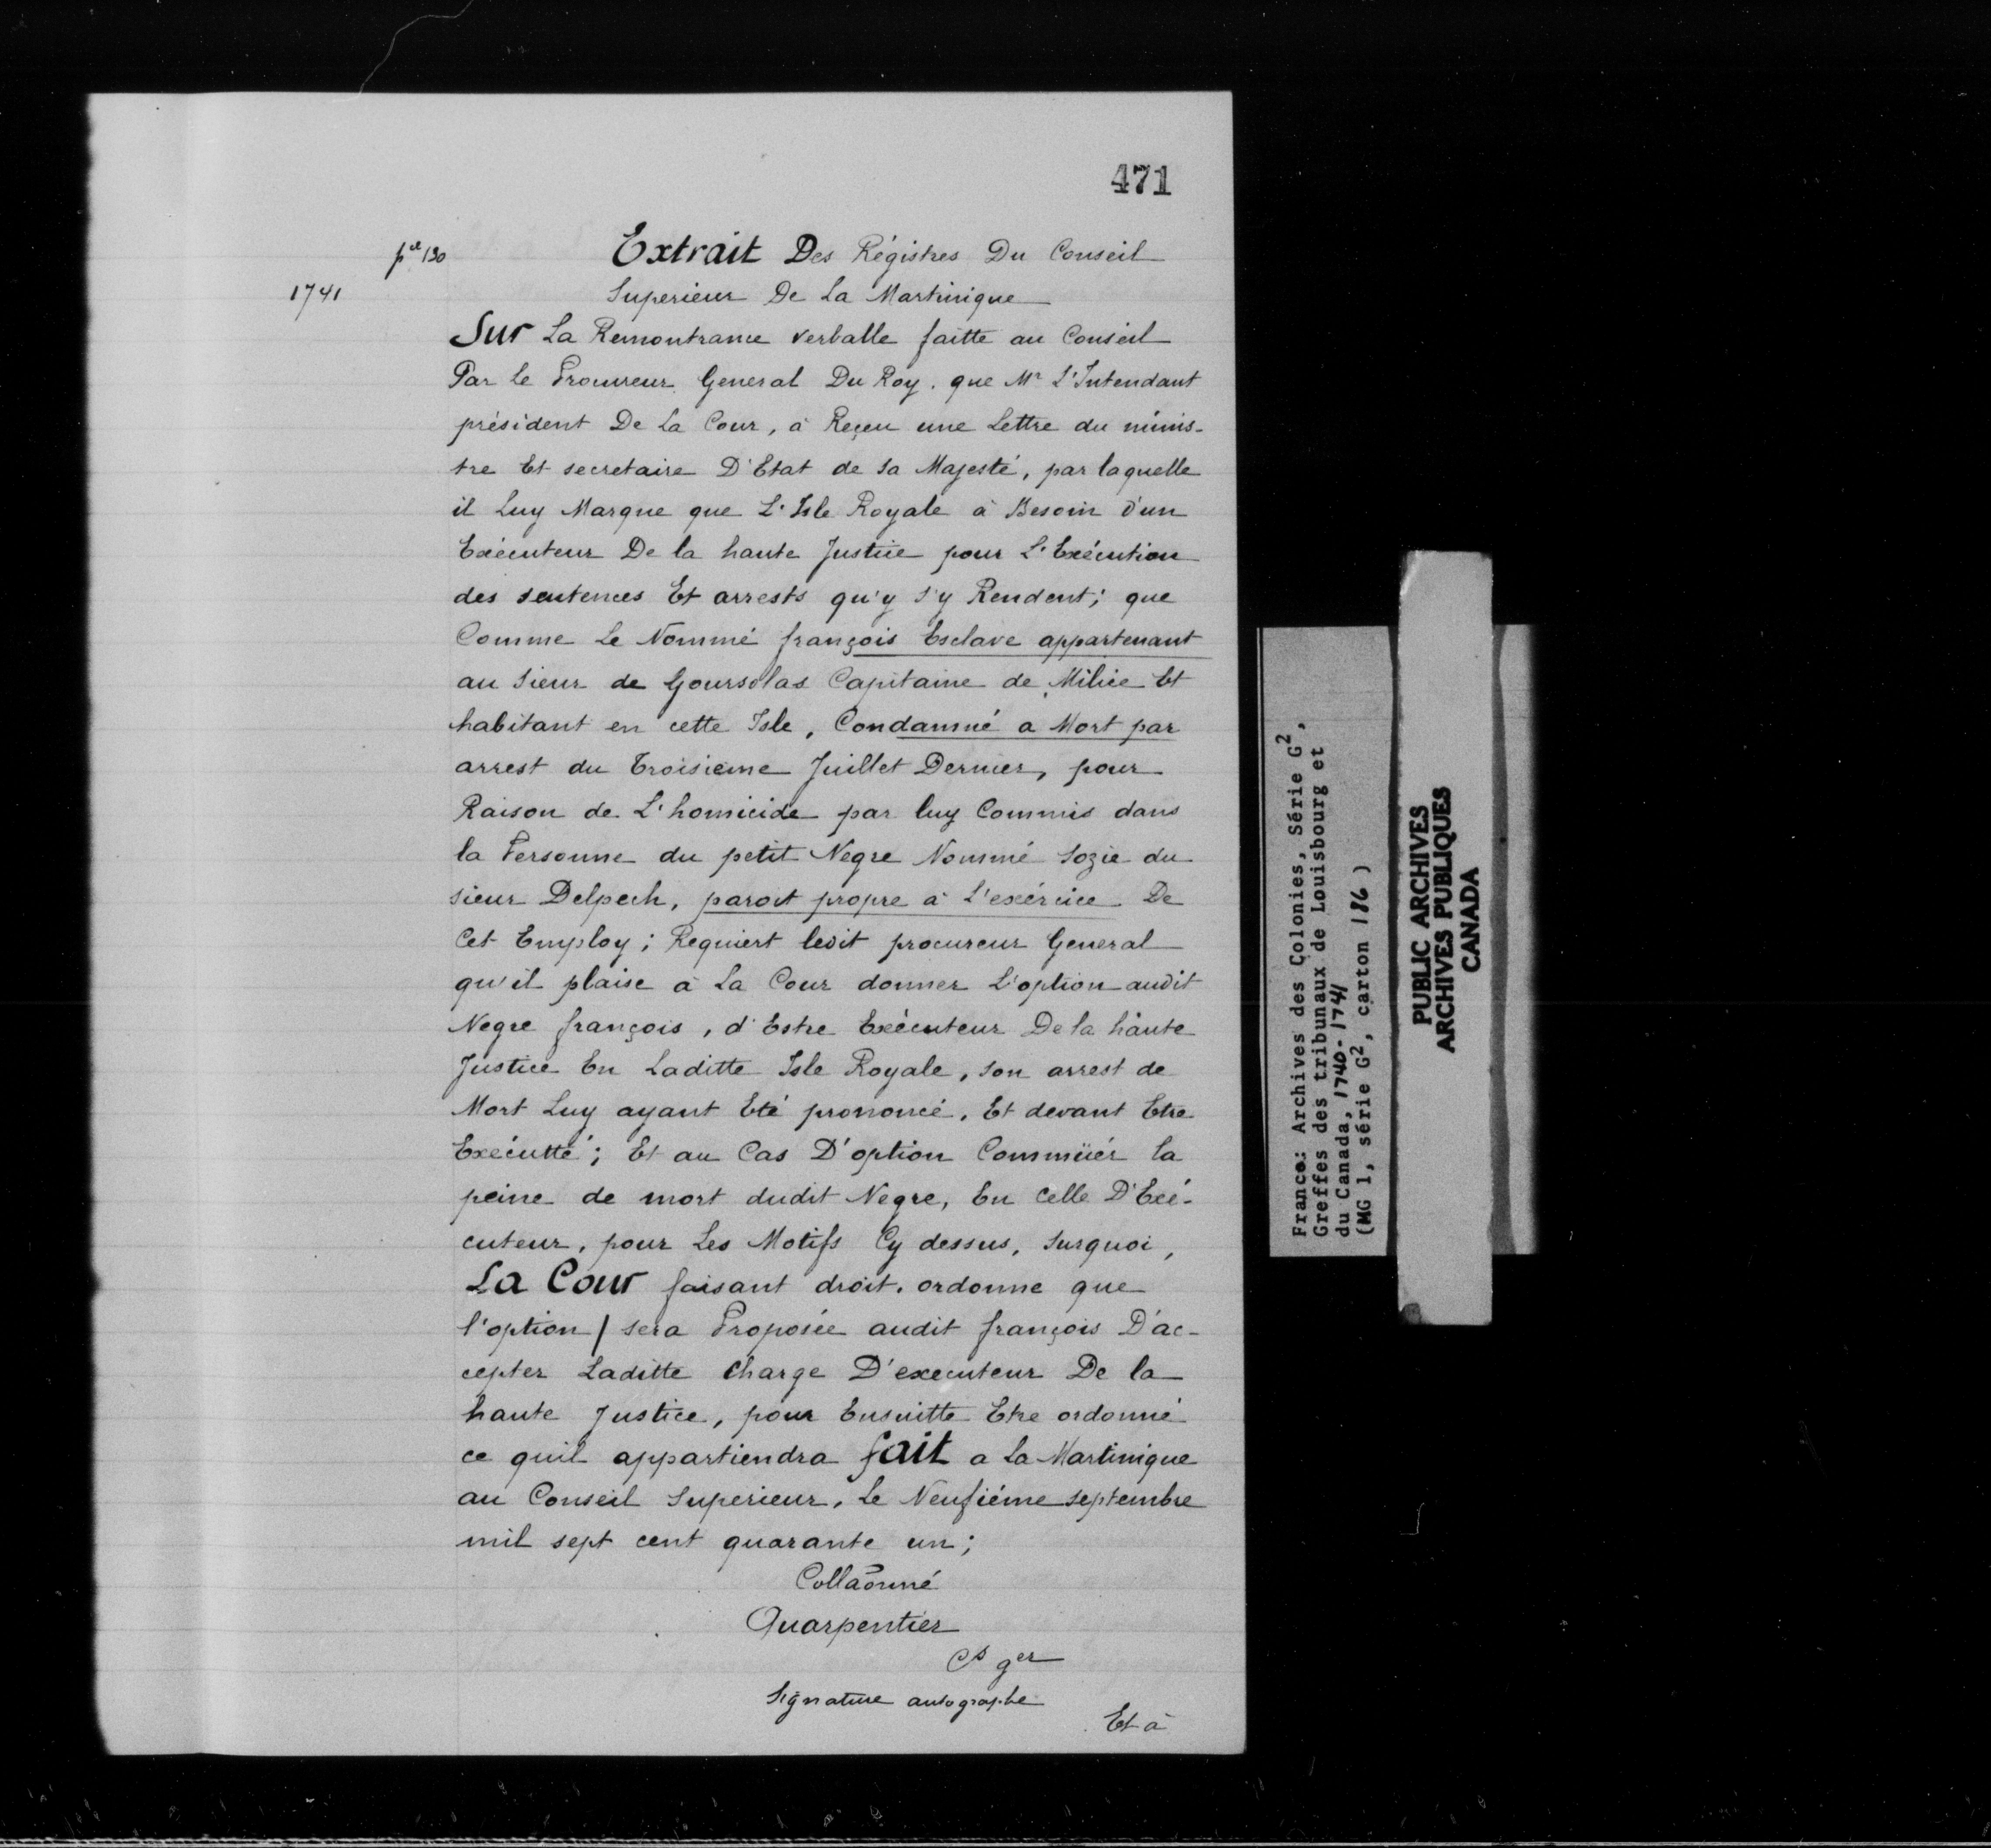 471
pce 130
1741
Extrait Des Régistres Du Conseil
Superieur De La Martinique
Sur La Remontrance verballe faitte au Conseil
Par le Procureur General Du Roy. que Mr L'Intendant
président De La Cour, à Reçeu une Lettre du minis-
tre Et secretaire D'Etat de Sa Majesté, par laquelle
il Luy Marque que L'Isle Royale à Besoin d'un
Exécuteur De la haute Justice pour L'Exécution
des sentences Et arrests qu'y s'y Rendent; que
Comme Le Nommé françois Esclave appartenant
au Sieur de Goursolas Capitaine de Milice Et
habitant en cette Isle, Condamné a Mort par
arrest du Troisieme Juillet Dernier, pour
Raison de L'homicide par luy Commis dans
la Personne du petit Negre Nommé Sozie du
sieur Delpech, paroit propre à L'exércice De
Cet Employ; Requiert ledit procureur General
qu'il plaise à La Cour donner L'option audit
Negre françois, d'Estre Exécuteur De la haute
Justice En Laditte Isle Royale, son arrest de
Mort Luy ayant Eté prononcé, Et devant Etre
Exécutté; Et au Cas D'option Commüér la
peine de mort dudit Negre, En Celle D'Exé-
cuteur, pour Les Motifs Cy dessus, Surquoi,
La Cour faisant droit. ordonne que
l'option / sera Proposée audit françois D'ac-
cepter Laditte Charge D'executeur De la
haute Justice, pour Ensuitte Etre ordonné
ce quil appartiendra fait a La Martinique
au Conseil Superieur, Le Neufiéme septembre
mil sept cent quarante un;
Collaõnné
Quarpentier
Cs ger
Signature autographe
Et à
France: Archives des Colonies, Série G2,
Greffes des tribunaux de Louisbourg et
du Canada, 1740-1741
(MG 1, série G2, carton 186)
PUBLIC ARCHIVES
ARCHIVES PUBLIQUES
CANADA